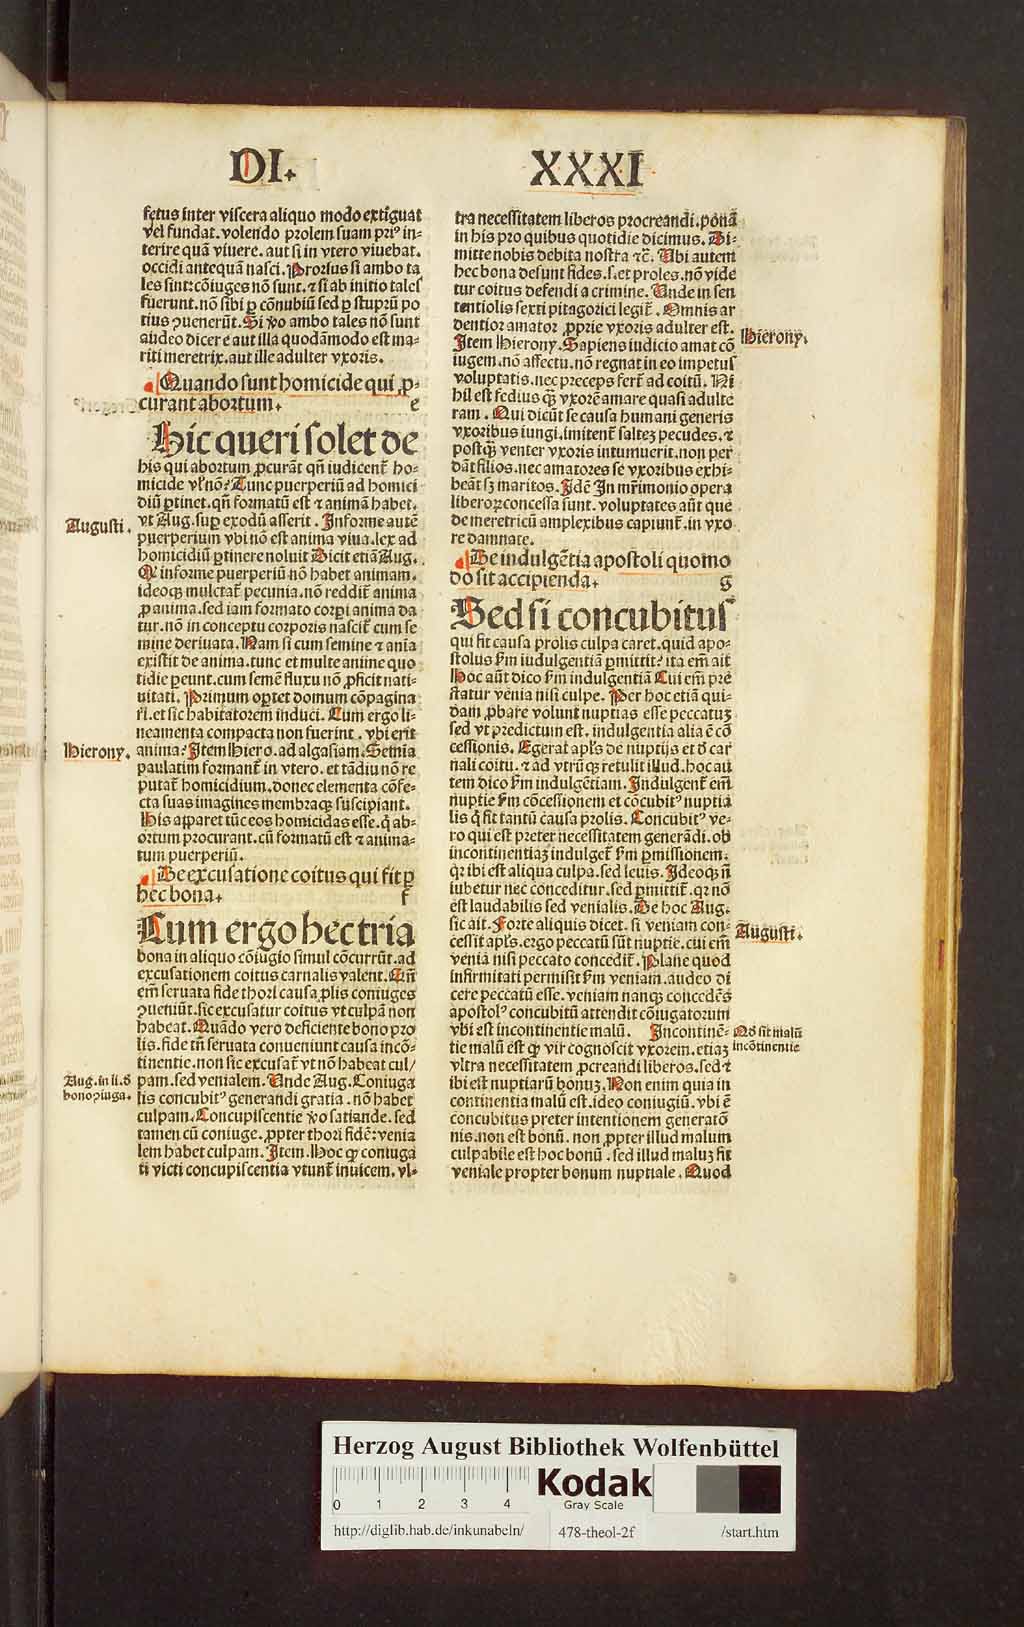 DI.
XXXI
fetus inter viscera aliquo modo extīguat
vel fundat. volendo prolem suam priꝰ in-
terire quā viuere. aut si in vtero viuebat.
occidi antequā nasci. Prorsus si ambo ta
les sint: cōiuges nō sunt. ⁊ si ab initio tales
fuerunt. nō sibi ꝑ cōnubiū sed ꝑ stuprū po
tius ꝯuenerūt. Si ꝟo ambo tales nō sunt
audeo dicere aut illa quodāmodo est ma-
riti meretrix. aut ille adulter vxoris.
Quando sunt homicide qui ꝓ-
curant abortum. e
Hic queri solet de
his qui abortum ꝓcurāt qn̄ iudicent̄ ho-
micide vl̓ nō? Tunc puerperiū ad homici
diū ꝑtinet. qn̄ formatū est ⁊ animā habet.
Augusti.
vt Aug. suꝑ exodū asserit. Informe autē
puerperium vbi nō est anima viua. lex ad
homicidiū ꝑtinere noluit Dicit etiā Aug.
Q̛ informe puerperiū nō habet animam.
ideoqꝫ mulctat̄ pecunia. nō reddit̄ anima
ꝓ anima. sed iam formato corpi anima da
tur. nō in conceptu corporis nascit̄ cum se
mine deriuata. Nam si cum semine ⁊ aīa
existit de anima. tunc et multe anime quo
tidie ꝑeunt. cum semē fluxu nō ꝓficit nati-
uitati. Primum oꝑtet domum cōpagina
ri. et sic habitatorem induci. Cum ergo li-
neamenta compacta non fuerint. vbi erit
Hierony.
anima? Item Hiero. ad algasiam. Semia
paulatim formant̄ in vtero. et tādiu nō re
putat̄ homicidium. donec elementa cōfe-
cta suas imagines membraqꝫ suscipiant.
His apparet tūc eos homicidas esse. q̄ ab-
ortum procurant. cū formatū est ⁊ anima-
tum puerperiū.
De excusatione coitus qui fit ꝑ
hec bona. f
Cum ergo hec tria
bona in aliquo cōiugio simul cōcurrūt. ad
excusationem coitus carnalis valent. Qn̄
em̄ seruata fide thori causa ꝓlis coniuges
ꝯueniūt. sic excusatur coitus vt culpā non
habeat. Quādo vero deficiente bono pro
lis. fide tn̄ seruata conueniunt causa incō-
tinentie. non sic excusat̄ vt nō habeat cul/
Aug. in li. d̄
bono ꝯiuga.
pam. sed venialem. Unde Aug. Coniuga
lis concubitꝰ generandi gratia. nō habet
culpam. Concupiscentie ꝟo satiande. sed
tamen cū coniuge. ꝓpter thori fidē: venia
lem habet culpam. Item. Hoc qꝙ coniuga
ti victi concupiscentia vtunt̄ inuicem. vl-
tra necessitatem liberos procreandi. ponā
in his pro quibus quotidie dicimus. Di-
mitte nobis debita nostra ⁊c̄. Ubi autem
hec bona desunt fides. s. et proles. nō vide
tur coitus defendi a crimine. Unde in sen
tentiolis sexti pitagorici legit̄. Omnis ar
dentior amator ꝓprie vxoris adulter est.
Hierony.
Item Hierony. Sapiens iudicio amat cō
iugem. nō affectu. nō regnat in eo impetus
voluptatis. nec preceps fert̄ ad coitū. Ni
hil est fedius qꝫ vxorē amare quasi adulte
ram. Qui dicūt se causa humani generis
vxoribus iungi. imitent̄ saltez pecudes. ⁊
postqꝫ venter vxoris intumuerit. non per
dāt filios. nec amatores se vxoribus exhi-
beāt sꝫ maritos. Idē In mr̄imonio opera
liberoꝝ concessa sunt. voluptates aūt que
de meretricū amplexibus capiunt̄. in vxo
re damnate.
De indulgētia apostoli quomo
do sit accipienda. g
Sed si concubitus
qui fit causa prolis culpa caret. quid apo-
stolus fm̄ iudulgentiā ꝑmittit? ita em̄ ait
Hoc aūt dico fm̄ indulgentiā Cui em̄ pre
statur venia nisi culpe. Per hoc etiā qui-
dam ꝓbare volunt nuptias esse peccatuꝫ
sed vt predictum est. indulgentia alia ē cō
cessionis. Egerat apl̓s de nuptijs et d̄ car
nali coitu. ⁊ ad vtrūqꝫ retulit illud. hoc au
tem dico fm̄ indulgētiam. Indulgent̄ em̄
nuptie fm̄ cōcessionem et cōcubitꝰ nuptia
lis q̄ fit tantū causa prolis. Concubitꝰ ve-
ro qui est preter necessitatem generādi. ob
incontinentiaꝫ indulget̄ fm̄ ꝑmissionem.
qꝛ ibi est aliqua culpa. sed leuis. Ideoqꝫ n̄
iubetur nec conceditur. sed ꝑmittit̄. qꝛ nō
est laudabilis sed venialis. De hoc Aug.
Augusti.
sic ait. Forte aliquis dicet. si veniam con-
cessit apl̓s. ergo peccatū sūt nuptie. cui em̄
venia nisi peccato concedit̄. Plane quod
infirmitati permisit fm̄ veniam. audeo di
cere peccatū esse. veniam nanqꝫ concedēs
apostolꝰ concubitū attendit cōiugatorum
vbi est incontinentie malū. Incontinē-
Qd̄ sit malū
incōtinentie
tie malū est qꝙ vir cognoscit vxorem. etiaꝫ
vltra necessitatem ꝓcreandi liberos. sed ⁊
ibi est nuptiarū bonuꝫ. Non enim quia in
continentia malū est. ideo coniugiū. vbi ē
concubitus preter intentionem generatō
nis. non est bonū. non ꝓpter illud malum
culpabile est hoc bonū. sed illud maluꝫ fit
veniale propter bonum nuptiale. Quod
Herzog August Bibliothek Wolfenbüttel
0 1 2 3 4
Kodak
Gray Scale
http://diglib.hab.de/inkunabeln/
478-theol-2f
/start.htm